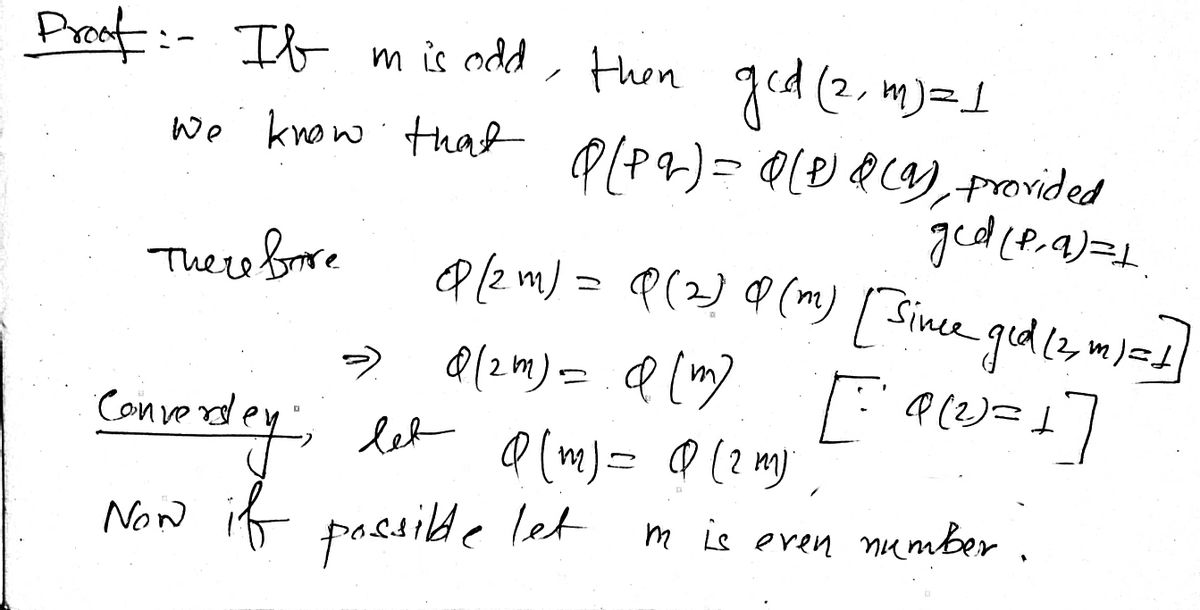 Proof :- If m is odd, then gcd (2, m)=1
We know that φ(pq)= φ(p) φ(q), provided
gcd (p, q)=1.
Therefore φ(2m) = φ(2) φ(m) [Since gcd (2, m)=1]
⇒ φ(2m) = φ(m) [∵ φ(2)=1]
Conversley, let φ(m)= φ(2m)
Now if possible let m is even number.